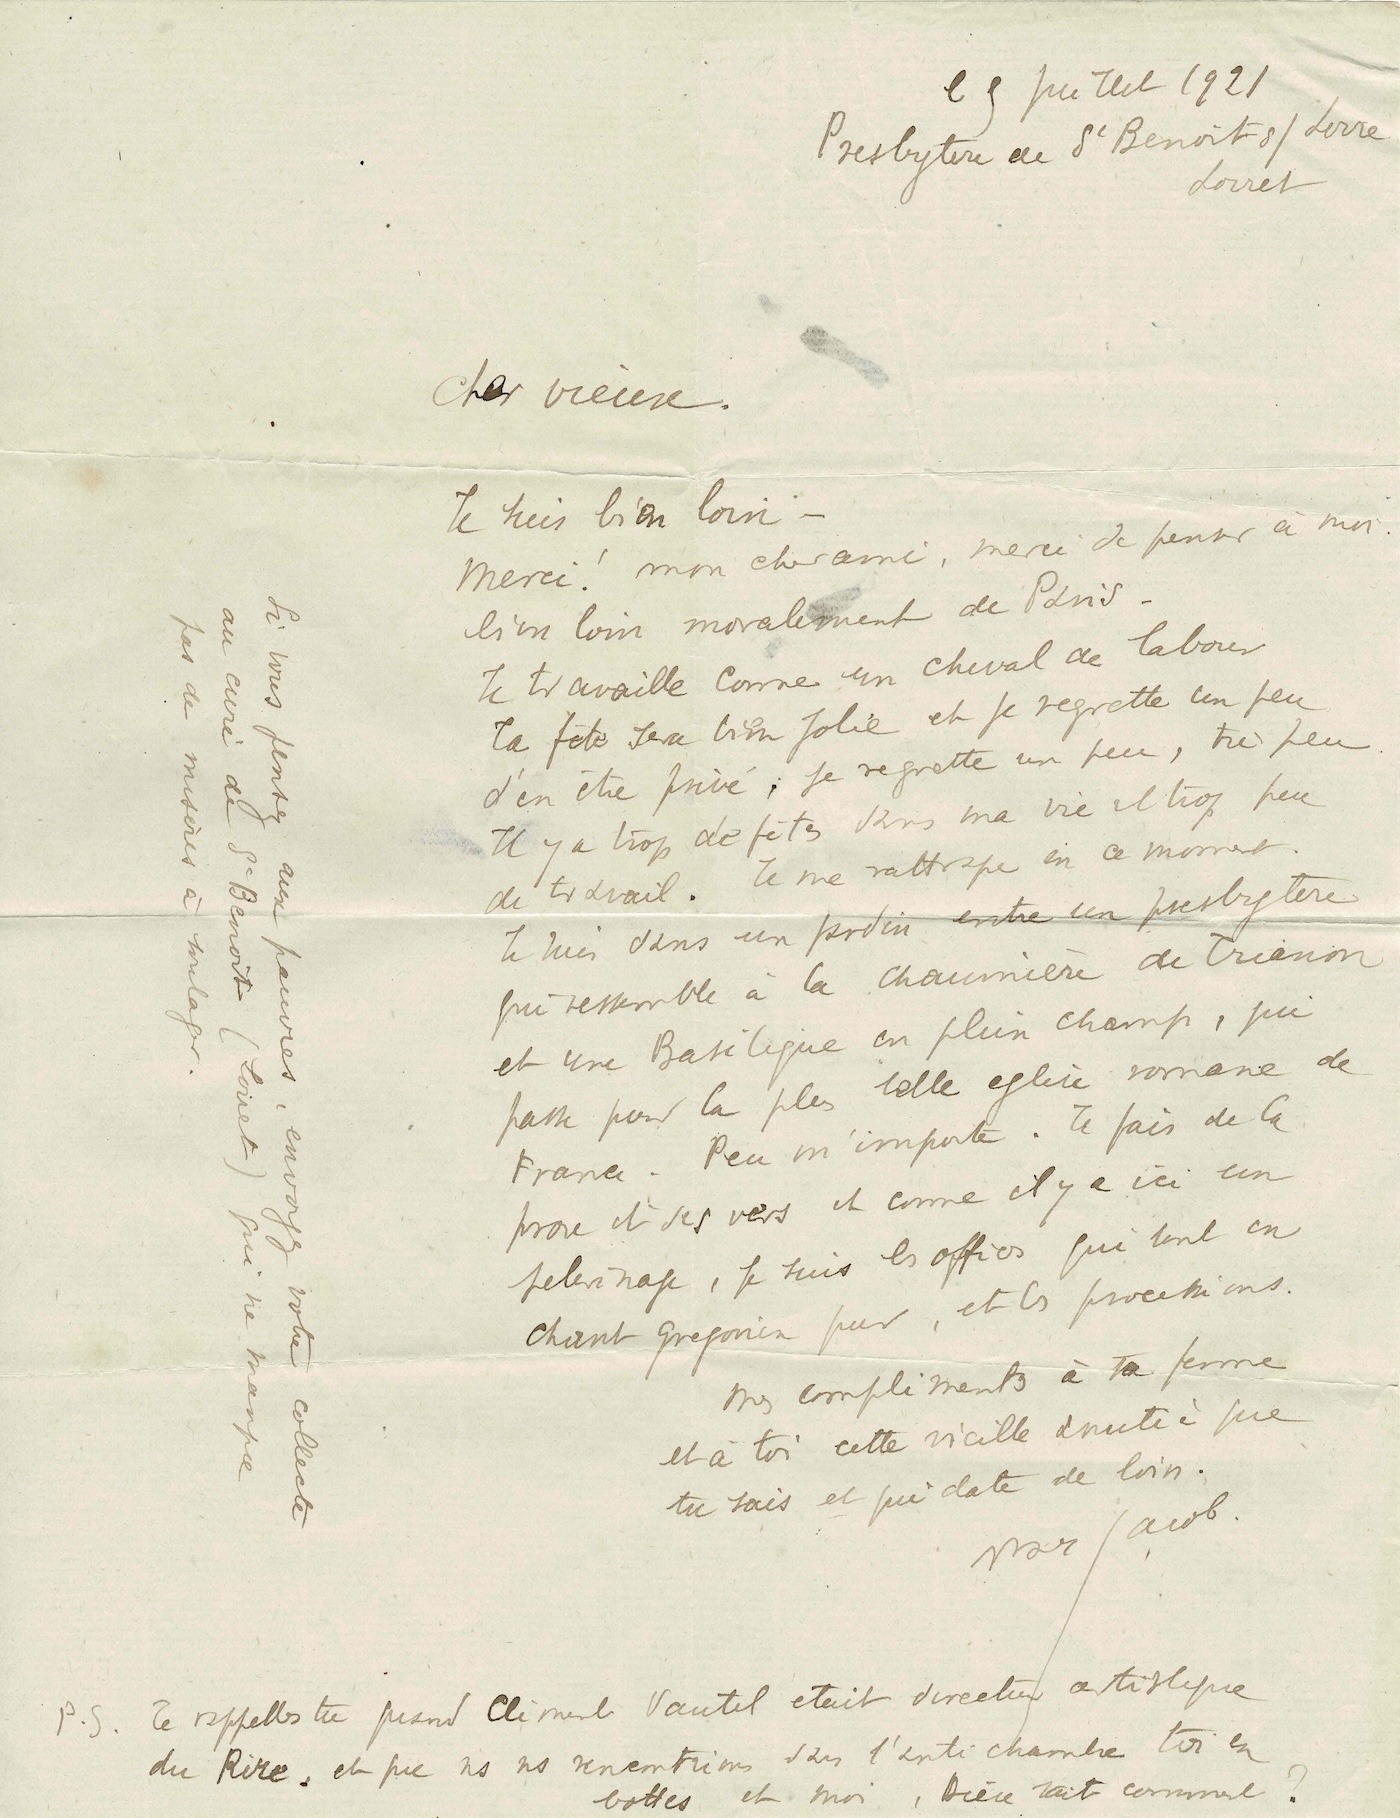 le 9 juillet 1921
Presbytère de St Benoit s/ Loire
Loiret
Cher vieux.
Je suis bien loin –
Merci! mon cher ami, merci de penser à moi.
bien loin moralement de Paris –
Je travaille comme un cheval de labour
Ta fête sera bien jolie et je regrette un peu
d'en être privé ; je regrette un peu, très peu.
Il y a trop de fêtes dans ma vie et trop peu
de travail. Je me rattrape en ce moment.
Je suis dans un jardin entre un presbytère
qui ressemble à la chaumière de Trianon
et une Basilique en plein champ, qui
passe pour la plus belle eglise romane de
France. Peu m'importe. Je fais de la
prose et des vers et comme il y a ici un
pelerinage, je suis les offices qui sont en
chant gregorien pur, et les processions.
Mes compliments à ta femme
et à toi cette vieille amitié que
tu sais et qui date de loin.
Max Jacob.
P.S. Te rappelles tu quand Clément Vautel etait directeur artistique
du Rire. et que ns ns rencontrions dans l'antichambre toi en
bottes et moi, Dieu sait comment ?
Si vous pensez aux pauvres, envoyez votre collecte
au curé de St Benoit (Loiret) qui ne manque
pas de misères à soulager.